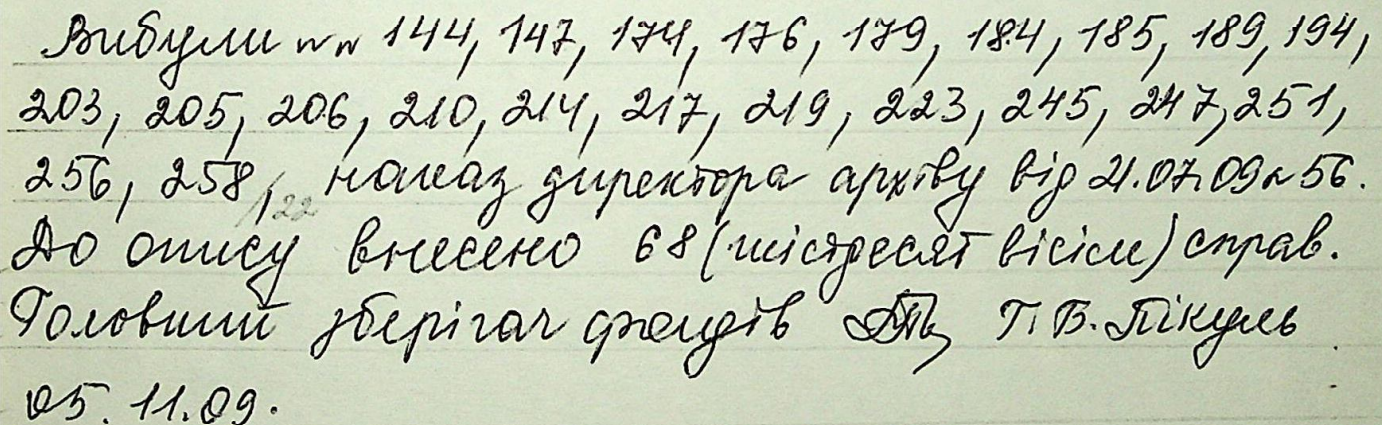 Вибули №№ 144, 147, 174, 176, 179, 184, 185, 189, 194,
203, 205, 206, 210, 214, 217, 219, 223, 245, 247, 251,
256, 258, наказ директора архіву від 21.07.09 № 56.
/22
До опису внесено 68 (шістдесят вісім) справ.
Головний зберігач фондів Т.В. Пікуль
05.11.09.